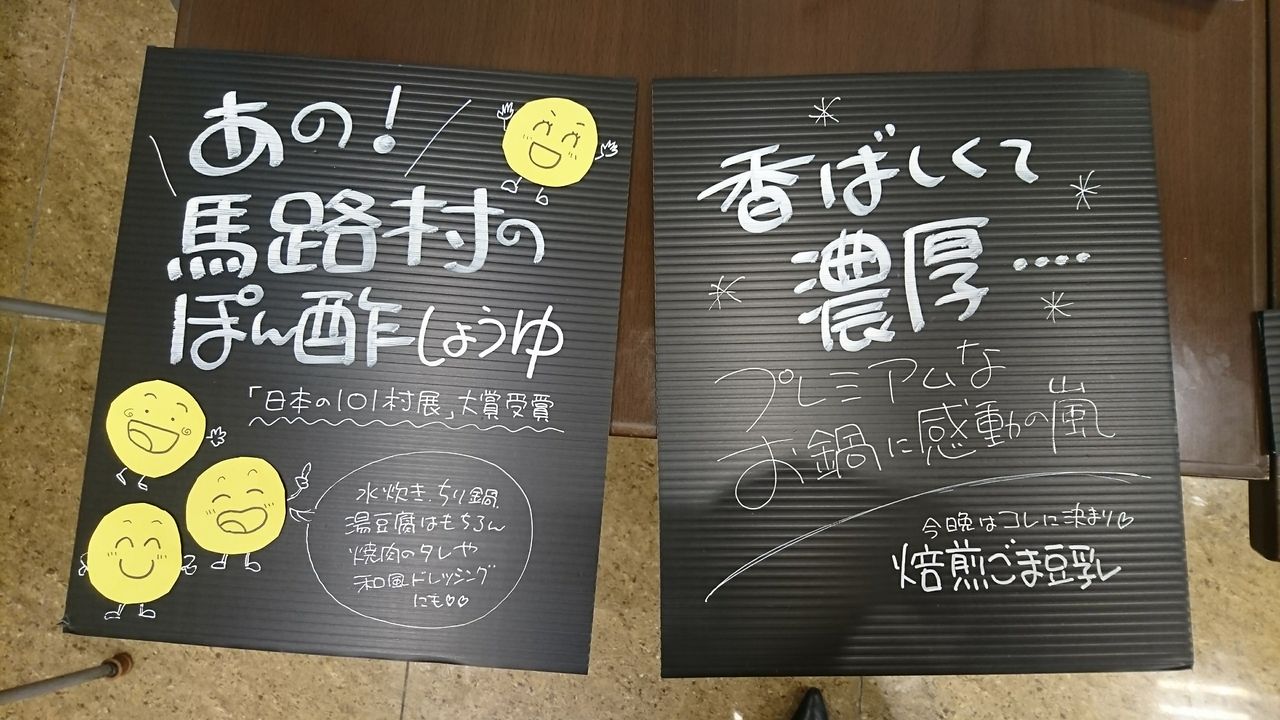 あの!
馬路村の
ぽん酢しょうゆ
「日本の101村展」大賞受賞
水炊き、ちり鍋、
湯豆腐はもちろん
焼肉のタレや
和風ドレッシング
にも♡♡
香ばしくて
濃厚‥‥
プレミアムな
お鍋に感動の嵐
今晩はコレに決まり♡
焙煎ごま豆乳